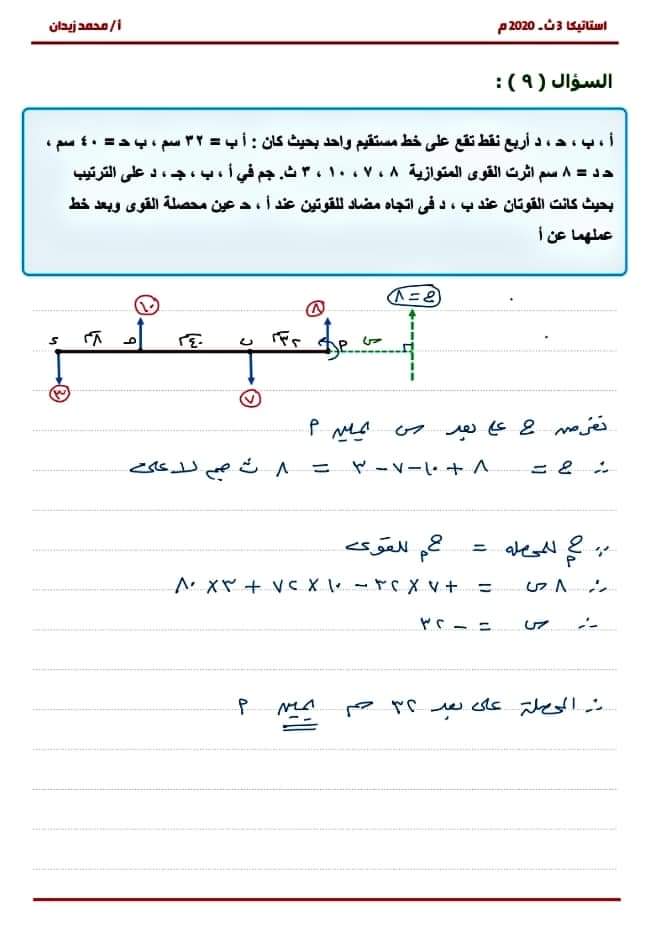 استاتيكا 3 ث ـ 2020 م
أ / محمد زيدان
السؤال ( ٩ ) :
أ ، ب ، حـ ، د أربع نقط تقع على خط مستقيم واحد بحيث كان : أ ب = ٣٢ سم ، ب حـ = ٤٠ سم ،
حـ د = ٨ سم اثرت القوى المتوازية ٨ ، ٧ ، ١٠ ، ٣ ث. جم في أ ، ب ، جـ ، د على الترتيب
بحيث كانت القوتان عند ب ، د فى اتجاه مضاد للقوتين عند أ ، حـ عين محصلة القوى وبعد خط
عملهما عن أ
ع = ٨
١٠ ٨
ء ٨سم حـ ٤٠سم ب ٣٢سم م س
٣ ٧
نفرض ع على بعد س يمين م
∴ ع = ٨ + ١٠ - ٧ - ٣ = ٨ ث جم لاعلى
∵ ج م للمحصلة = ج م للقوى
∴ ٨ س = + ٧ × ٣٢ - ١٠ × ٧٢ + ٣ × ٨٠
∴ س = - ٣٢
∴ المحصلة على بعد ٣٢ سم يمين م